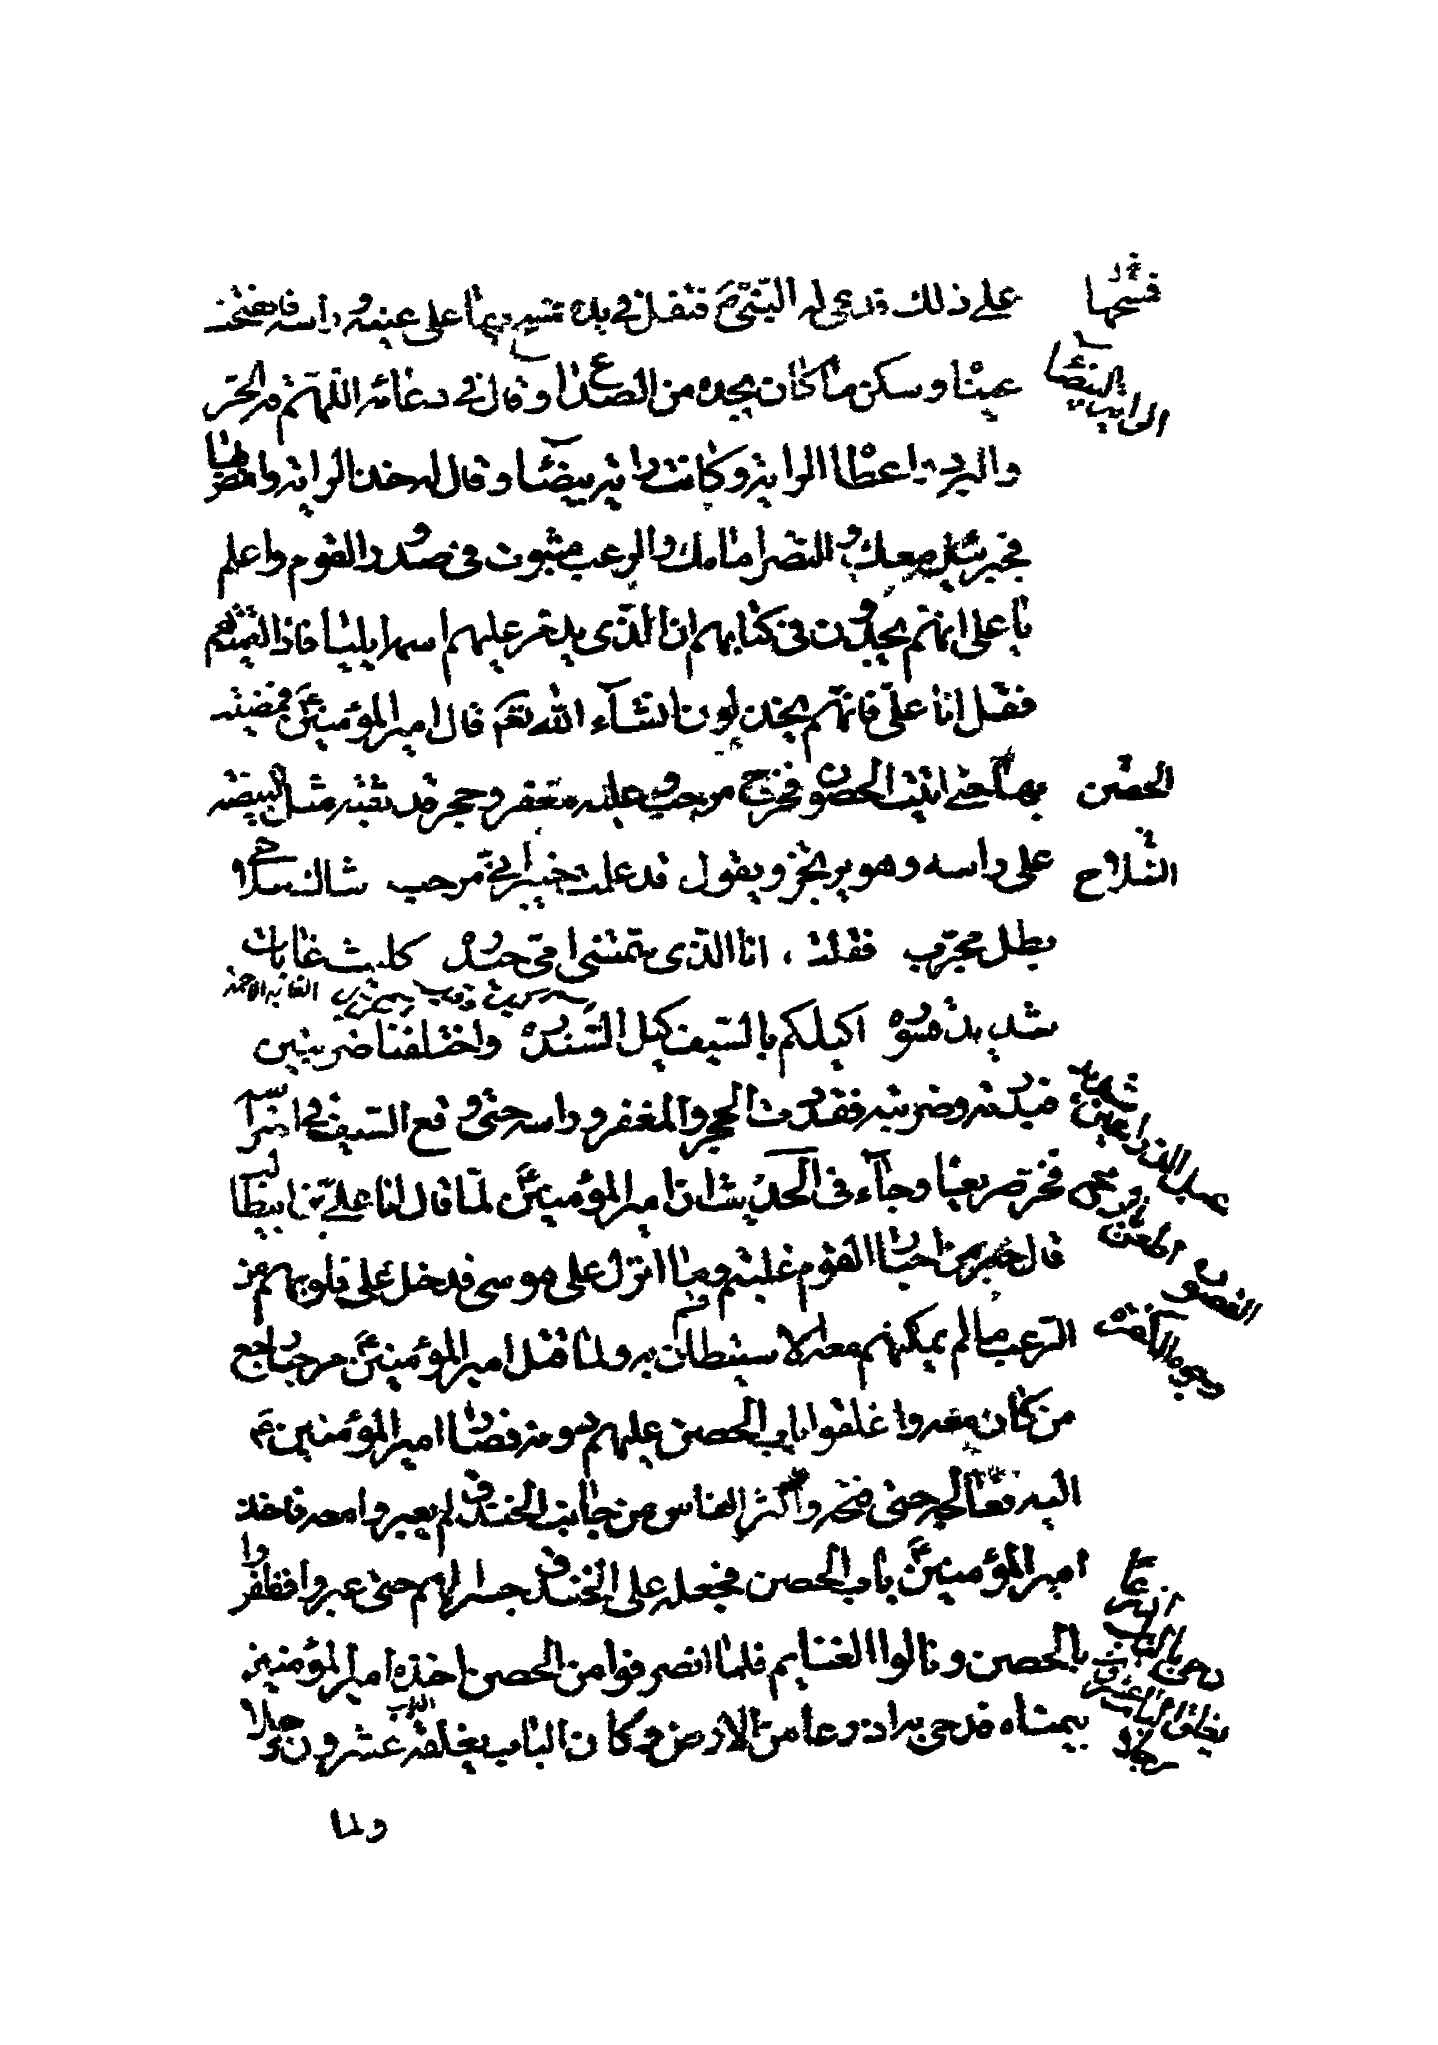 على ذلك ودعى له النبي فتفل في يده فمسح بها على عينيه وراسه فانفتحت
فمسحها
عيناه وسكن ما كان يجده من الصداع وقال في دعائه اللهم قه الحر
والبرد واعطاه الراية وكانت راية بيضاء وقال له خذ الراية وامض بها
الراية البيضاء
فجبرئيل معك والنصر امامك والرعب مبثوث في صدور القوم واعلم
يا علي انهم يجدون في كتابهم ان الذي يدمر عليهم اسمه ايليا فاذا لقيتهم
فقل انا علي فانهم يخذلون انشاء الله تعالى قال امير المؤمنين فمضيت
بها حتى اتيت الحصون فخرج مرحب وعليه مغفر وحجر قد ثقبه مثل البيضة
الحصن
على راسه وهو يرتجز ويقول قد علمت خيبر اني مرحب شاك سلاحي
السلاح
بطل مجرب فقلت انا الذي سمتني امي حيدره كليث غابات
شديد قسوره اكيلكم بالسيف كيل السندره واختلفنا ضربتين
فبدرته وضربته فقددت الحجر والمغفر وراسه حتى وقع السيف في اضراسه
فخر صريعا وجاء في الحديث ان امير المؤمنين لما قال انا علي بن ابيطالب
قال حبر من احبار القوم غلبتم وما انزل على موسى فدخل على قلوبهم من
الرعب ما لم يمكنهم معه الاستيطان به ولما قتل امير المؤمنين مرحبا رجع
من كان معه واغلقوا باب الحصن عليهم دونه فصار امير المؤمنين
اليه فعالجه حتى فتحه واكثر الناس من جانب الخندق لم يعبروا معه فاخذ
امير المؤمنين باب الحصن فجعله على الخندق جسرا لهم حتى عبروا فظفروا
بالحصن ونالوا الغنايم فلما انصرفوا من الحصن اخذه امير المؤمنين
بيمناه فدحى به اذرعا من الارض وكان الباب يغلقه عشرون رجلا
ولما